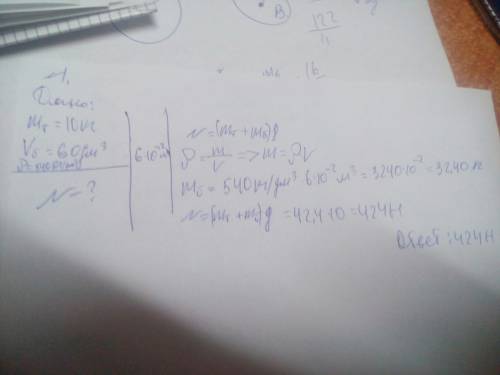 В
122
16
1.
Дано:
mг = 10кг
Vб = 60дм³
N-?
6·10⁻²м³
N=(mг+mб)g
ρ = m/V => m = ρV
mб = 540кг/дм³ 6·10⁻²м³ = 3240·10⁻² = 32,40 кг
N=(mг+mб)g = 42,4·10 = 424Н
Ответ: 424Н